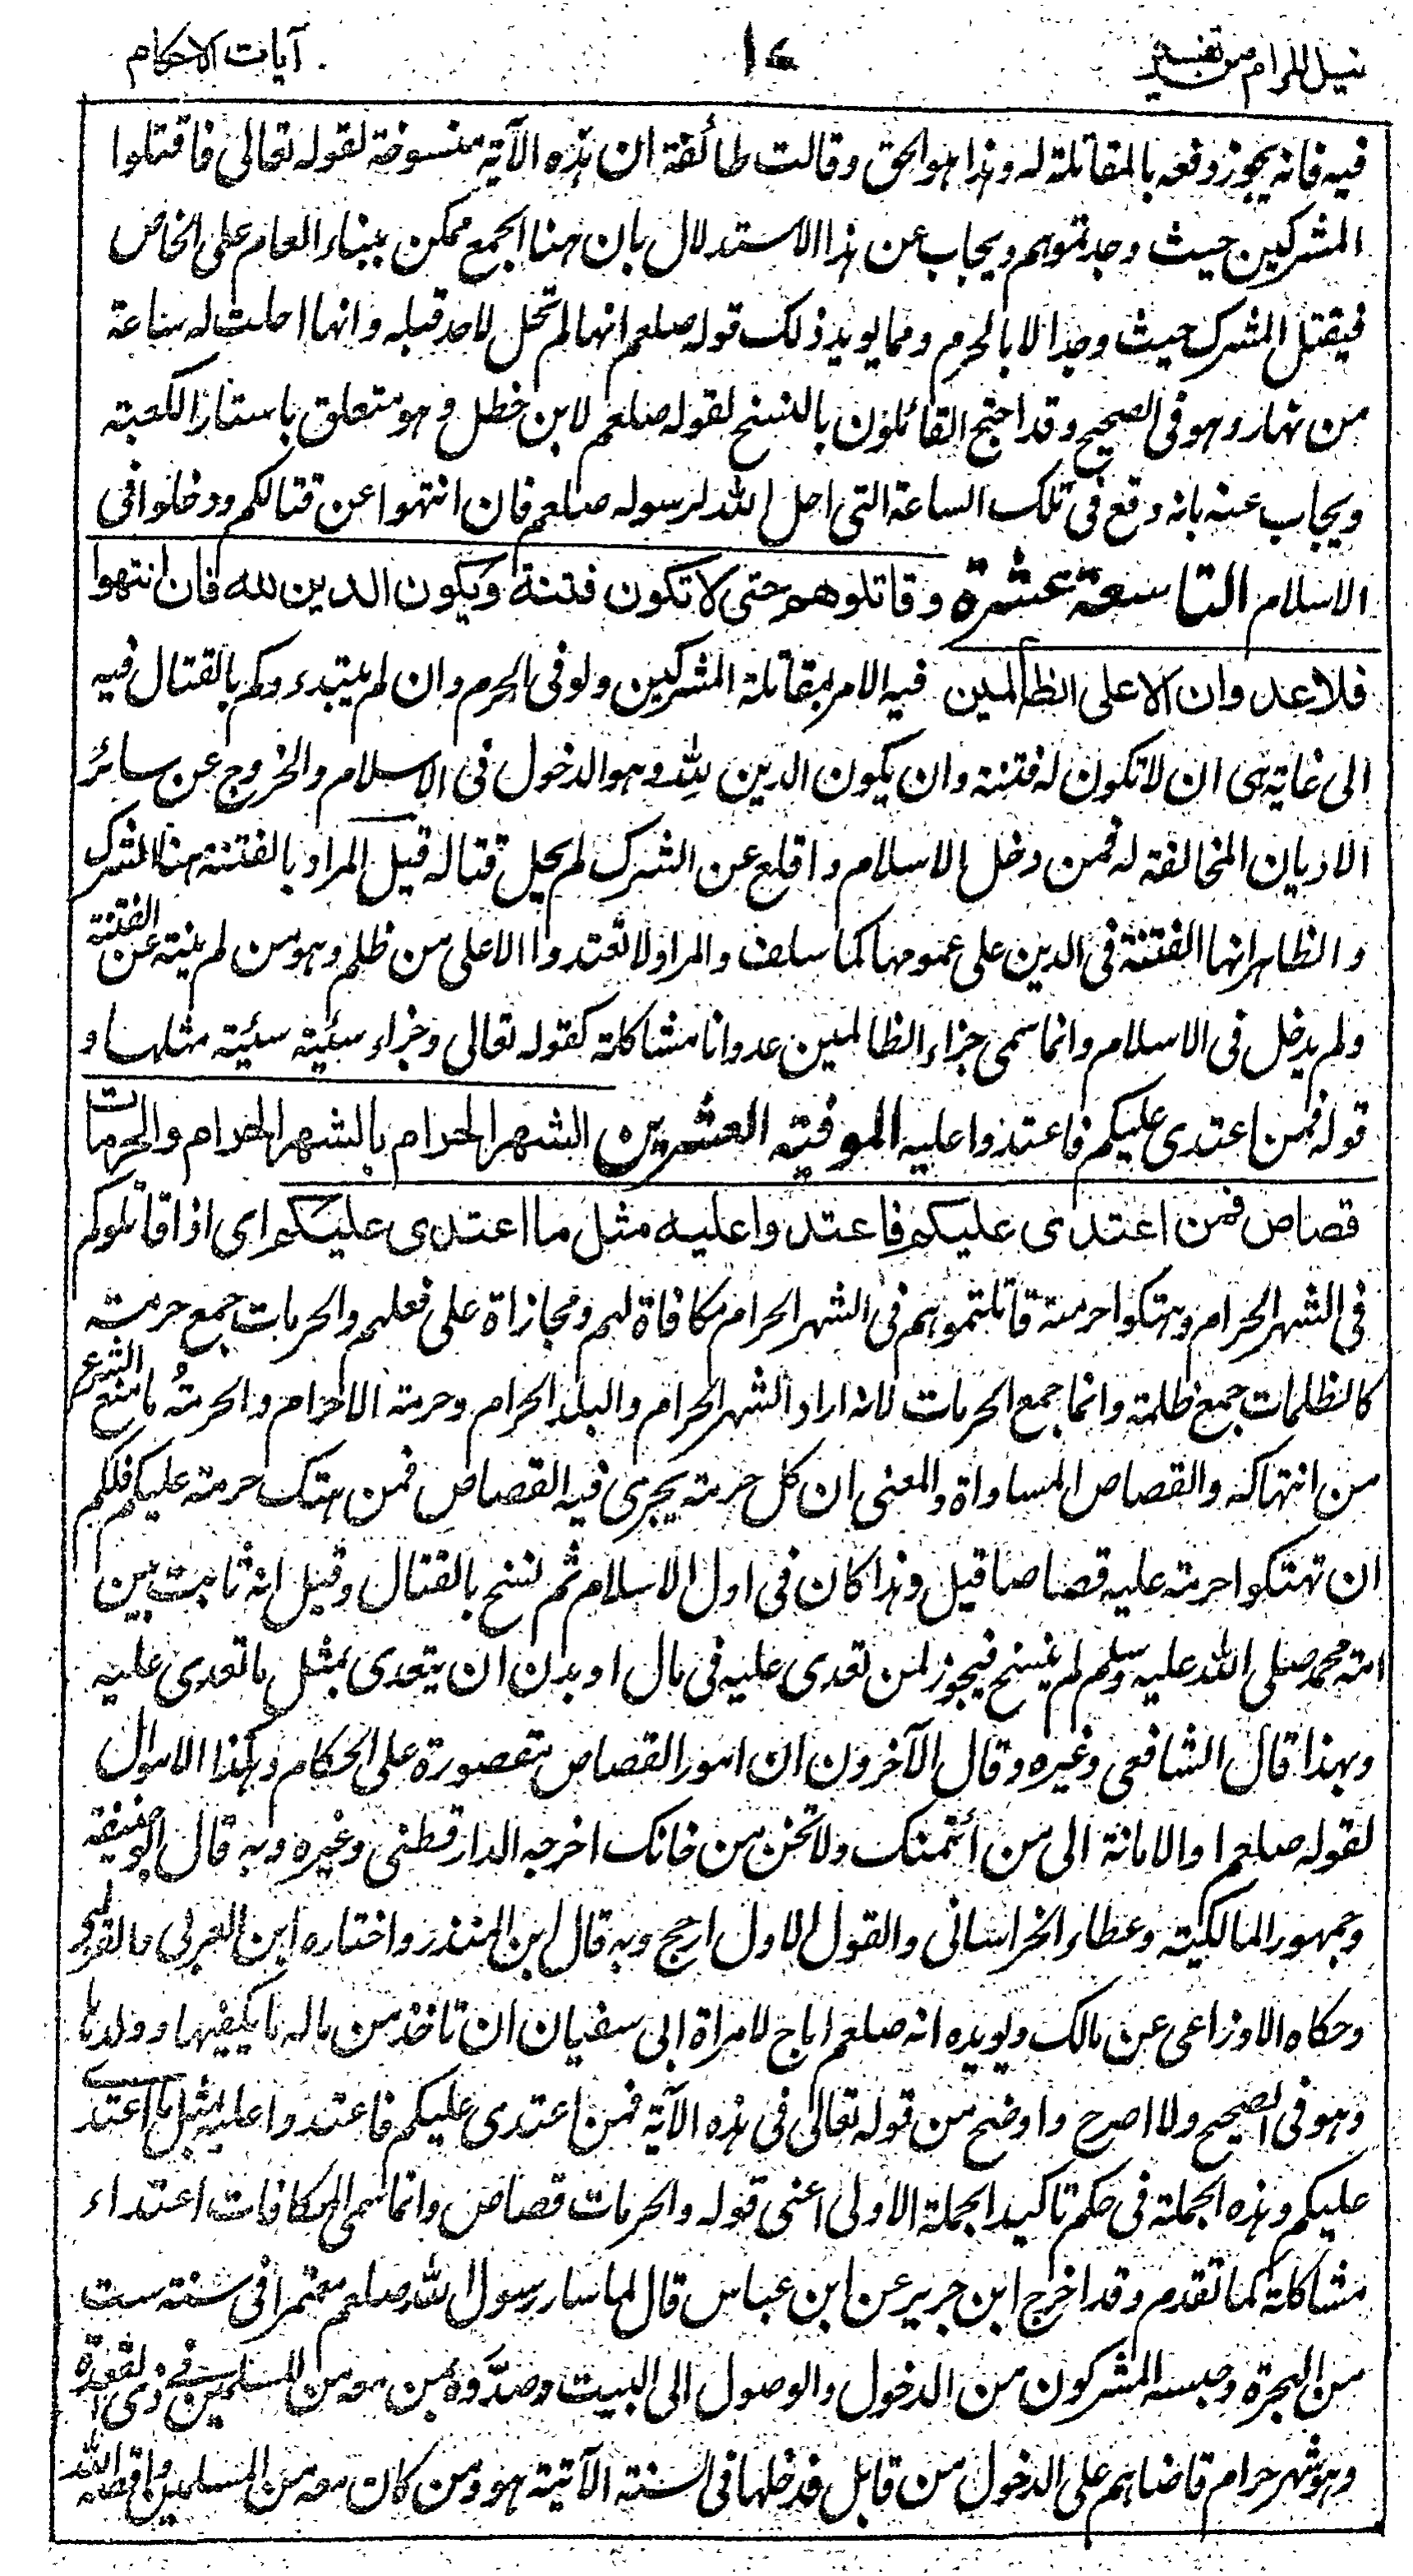 نيل المرام من تفسير
١٧
آيات الاحكام
فيه فانه يجوز دفعه بالمقاتلة له وهذا هو الحق وقالت طائفة ان هذه الآية منسوخة لقوله تعالى فاقتلوا
المشركين حيث وجدتموهم ويجاب عن هذا الاستدلال بان هنا الجمع ممكن ببناء العام على الخاص
فيقتل المشرك حيث وجد الا بالحرم ومما يويد ذلك قوله صلعم انها لم تحل لاحد قبله وانها احلت له ساعة
من نهار وهو فى الصحيح وقد احتج القائلون بالنسخ لقوله صلعم لابن خطل وهو متعلق باستار الكعبة
ويجاب عنه بانه وقع فى تلك الساعة التى احل الله لرسوله صلعم فان انتهوا عن قتالكم ودخلوا فى
الاسلام التاسعة عشرة وقاتلوهم حتى لا تكون فتنة ويكون الدين لله فان انتهوا
فلا عدوان الا على الظالمين فيه الامر بمقاتلة المشركين ولو فى الحرم وان لم يبتدءوكم بالقتال فيه
الى غاية هى ان لا تكون له فتنة وان يكون الدين لله وهو الدخول فى الاسلام والخروج عن سائر
الاديان المخالفة له فمن دخل الاسلام واقلع عن الشرك لم يحل قتاله قيل المراد بالفتنة هنا الشرك
والظاهر انها الفتنة فى الدين على عمومها كما سلف والمراد لا تعتدوا الا على من ظلم وهو من لم ينته عن الفتنة
ولم يدخل فى الاسلام وانما سمى جزاء الظالمين عدوانا مشاكلة كقوله تعالى وجزاء سيئة سيئة مثلها و
قوله فمن اعتدى عليكم فاعتدوا عليه الموفية العشرين الشهر الحرام بالشهر الحرام والحرمات
قصاص فمن اعتدى عليكم فاعتدوا عليه مثل ما اعتدى عليكم اى اذا قاتلوكم
فى الشهر الحرام وهتكوا حرمته قاتلتموهم فى الشهر الحرام مكافاة لهم ومجازاة على فعلهم والحرمات جمع حرمة
كالظلمات جمع ظلمة وانما جمع الحرمات لانه اراد الشهر الحرام والبلد الحرام وحرمة الاحرام والحرمةُ ما منع الشرع
من انتهاكه والقصاص المساواة والمعنى ان كل حرمة يجرى فيه القصاص فمن هتك حرمة عليكم فلكم
ان تهتكوا حرمة عليه قصاصا قيل وهذا كان فى اول الاسلام ثم نسخ بالقتال وقيل انه ثابت بين
امة محمد صلى الله عليه وسلم لم ينسخ فيجوز لمن تعدى عليه فى مال او بدن ان يتعدى بمثل ما تعدى عليه
وبهذا قال الشافعى وغيره وقال الآخرون ان امور القصاص مقصورة على الحكام وهكذا الاموال
لقوله صلعم اد الامانة الى من أئتمنك ولا تخن من خانك اخرجه الدارقطنى وغيره وبه قال ابو حنيفة
وجمهور المالكية وعطاء الخراسانى والقول الاول ارجح وبه قال ابن المنذر واختاره ابن العربى والقرطبى
وحكاه الاوزاعى عن مالك ويويده انه صلعم اباح لامراة ابى سفيان ان تاخذ من ماله ما يكفيها وولدها
وهو فى الصحيح ولا اصرح واوضح من قوله تعالى فى هذه الآية فمن اعتدى عليكم فاعتدوا عليه بمثل ما اعتدى
عليكم وهذه الجملة فى حكم تاكيد الجملة الاولى اعنى قوله والحرمات قصاص وانما سمى المكافات اعتداء
مشاكلة كما تقدم وقد اخرج ابن جرير عن ابن عباس قال لما سار رسول الله صلعم معتمرا فى سنة ست
من الهجرة وحبسه المشركون من الدخول والوصول الى البيت وصدّوه بمن معه من المسلمين فى ذى القعدة
وهو شهر حرام قاضاهم على الدخول من قابل فدخلها فى السنة الآتية هو ومن كان معه من المسلمين واقصه الله